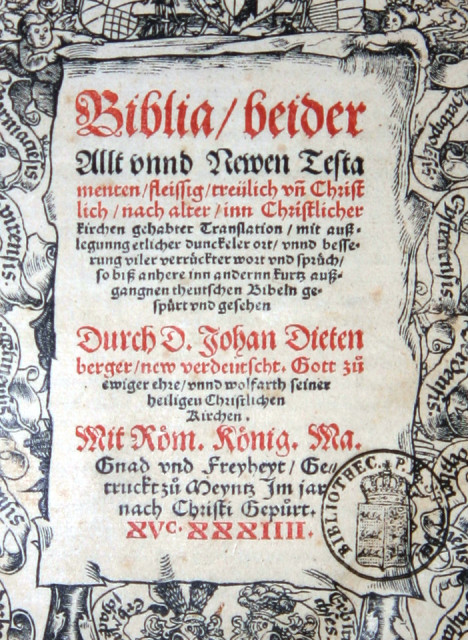 Biblia/ beider
Allt vnnd Newen Testa
menten/fleissig/treülich vñ Christ
lich/nach alter/inn Christlicher
kirchen gehabter Translation/mit auß-
legunng etlicher dunckeler ort/vnnd besse-
rung viler verrückter wort vnd sprüch/
so biß anhere inn andernn kurtz auß-
gangnen theutschen Bibeln ge-
spürt vnd gesehen
Durch D. Johan Dieten
berger/new verdeutscht. Gott zů
ewiger ehre/vnnd wolfarth seiner
heiligen Christlichen
Kirchen.
Mit Röm. König. Ma.
Gnad vnd Freyheyt/Ge-
truckt zů Meyntz Im jar
nach Christi Gepürt.
XVC. XXXIIII.
BIBLIOTHEC. P.